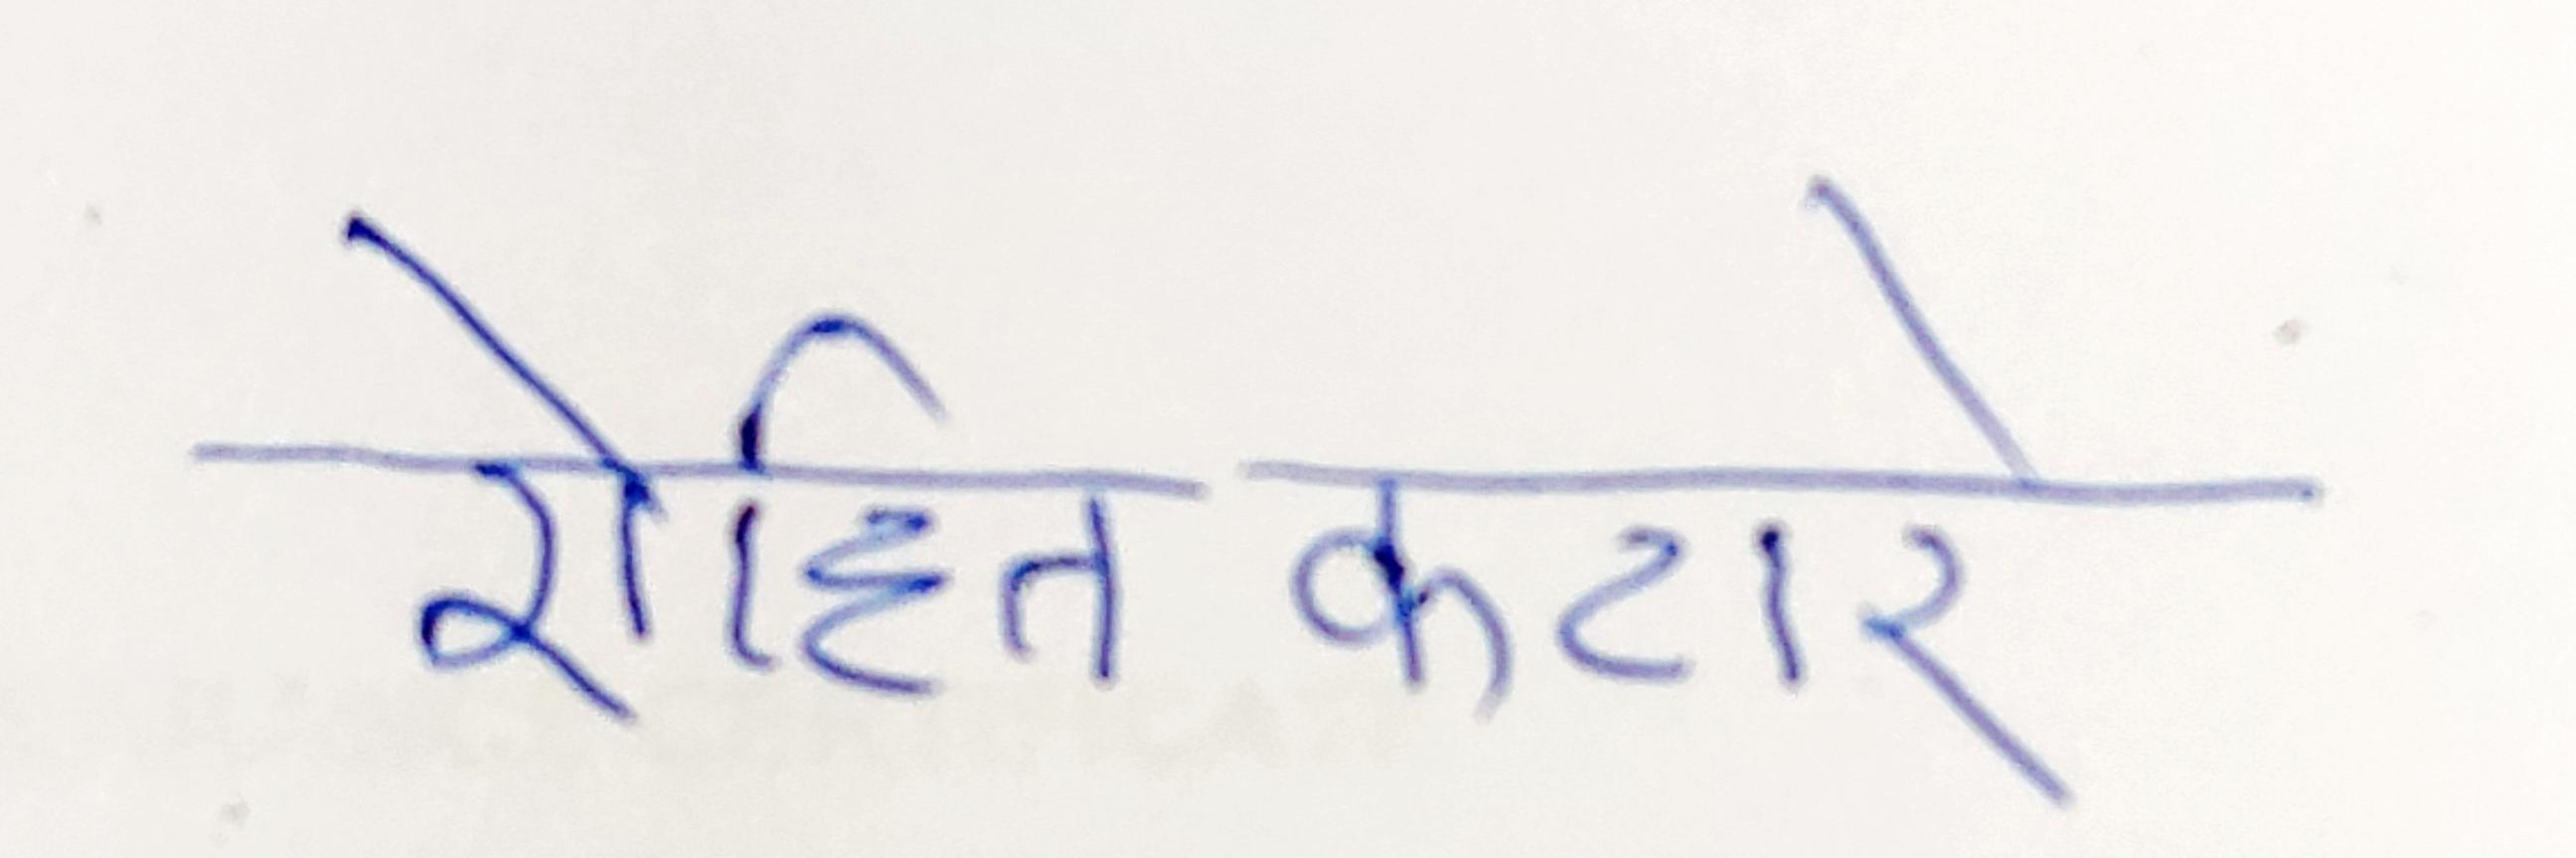 रोहित कटारे